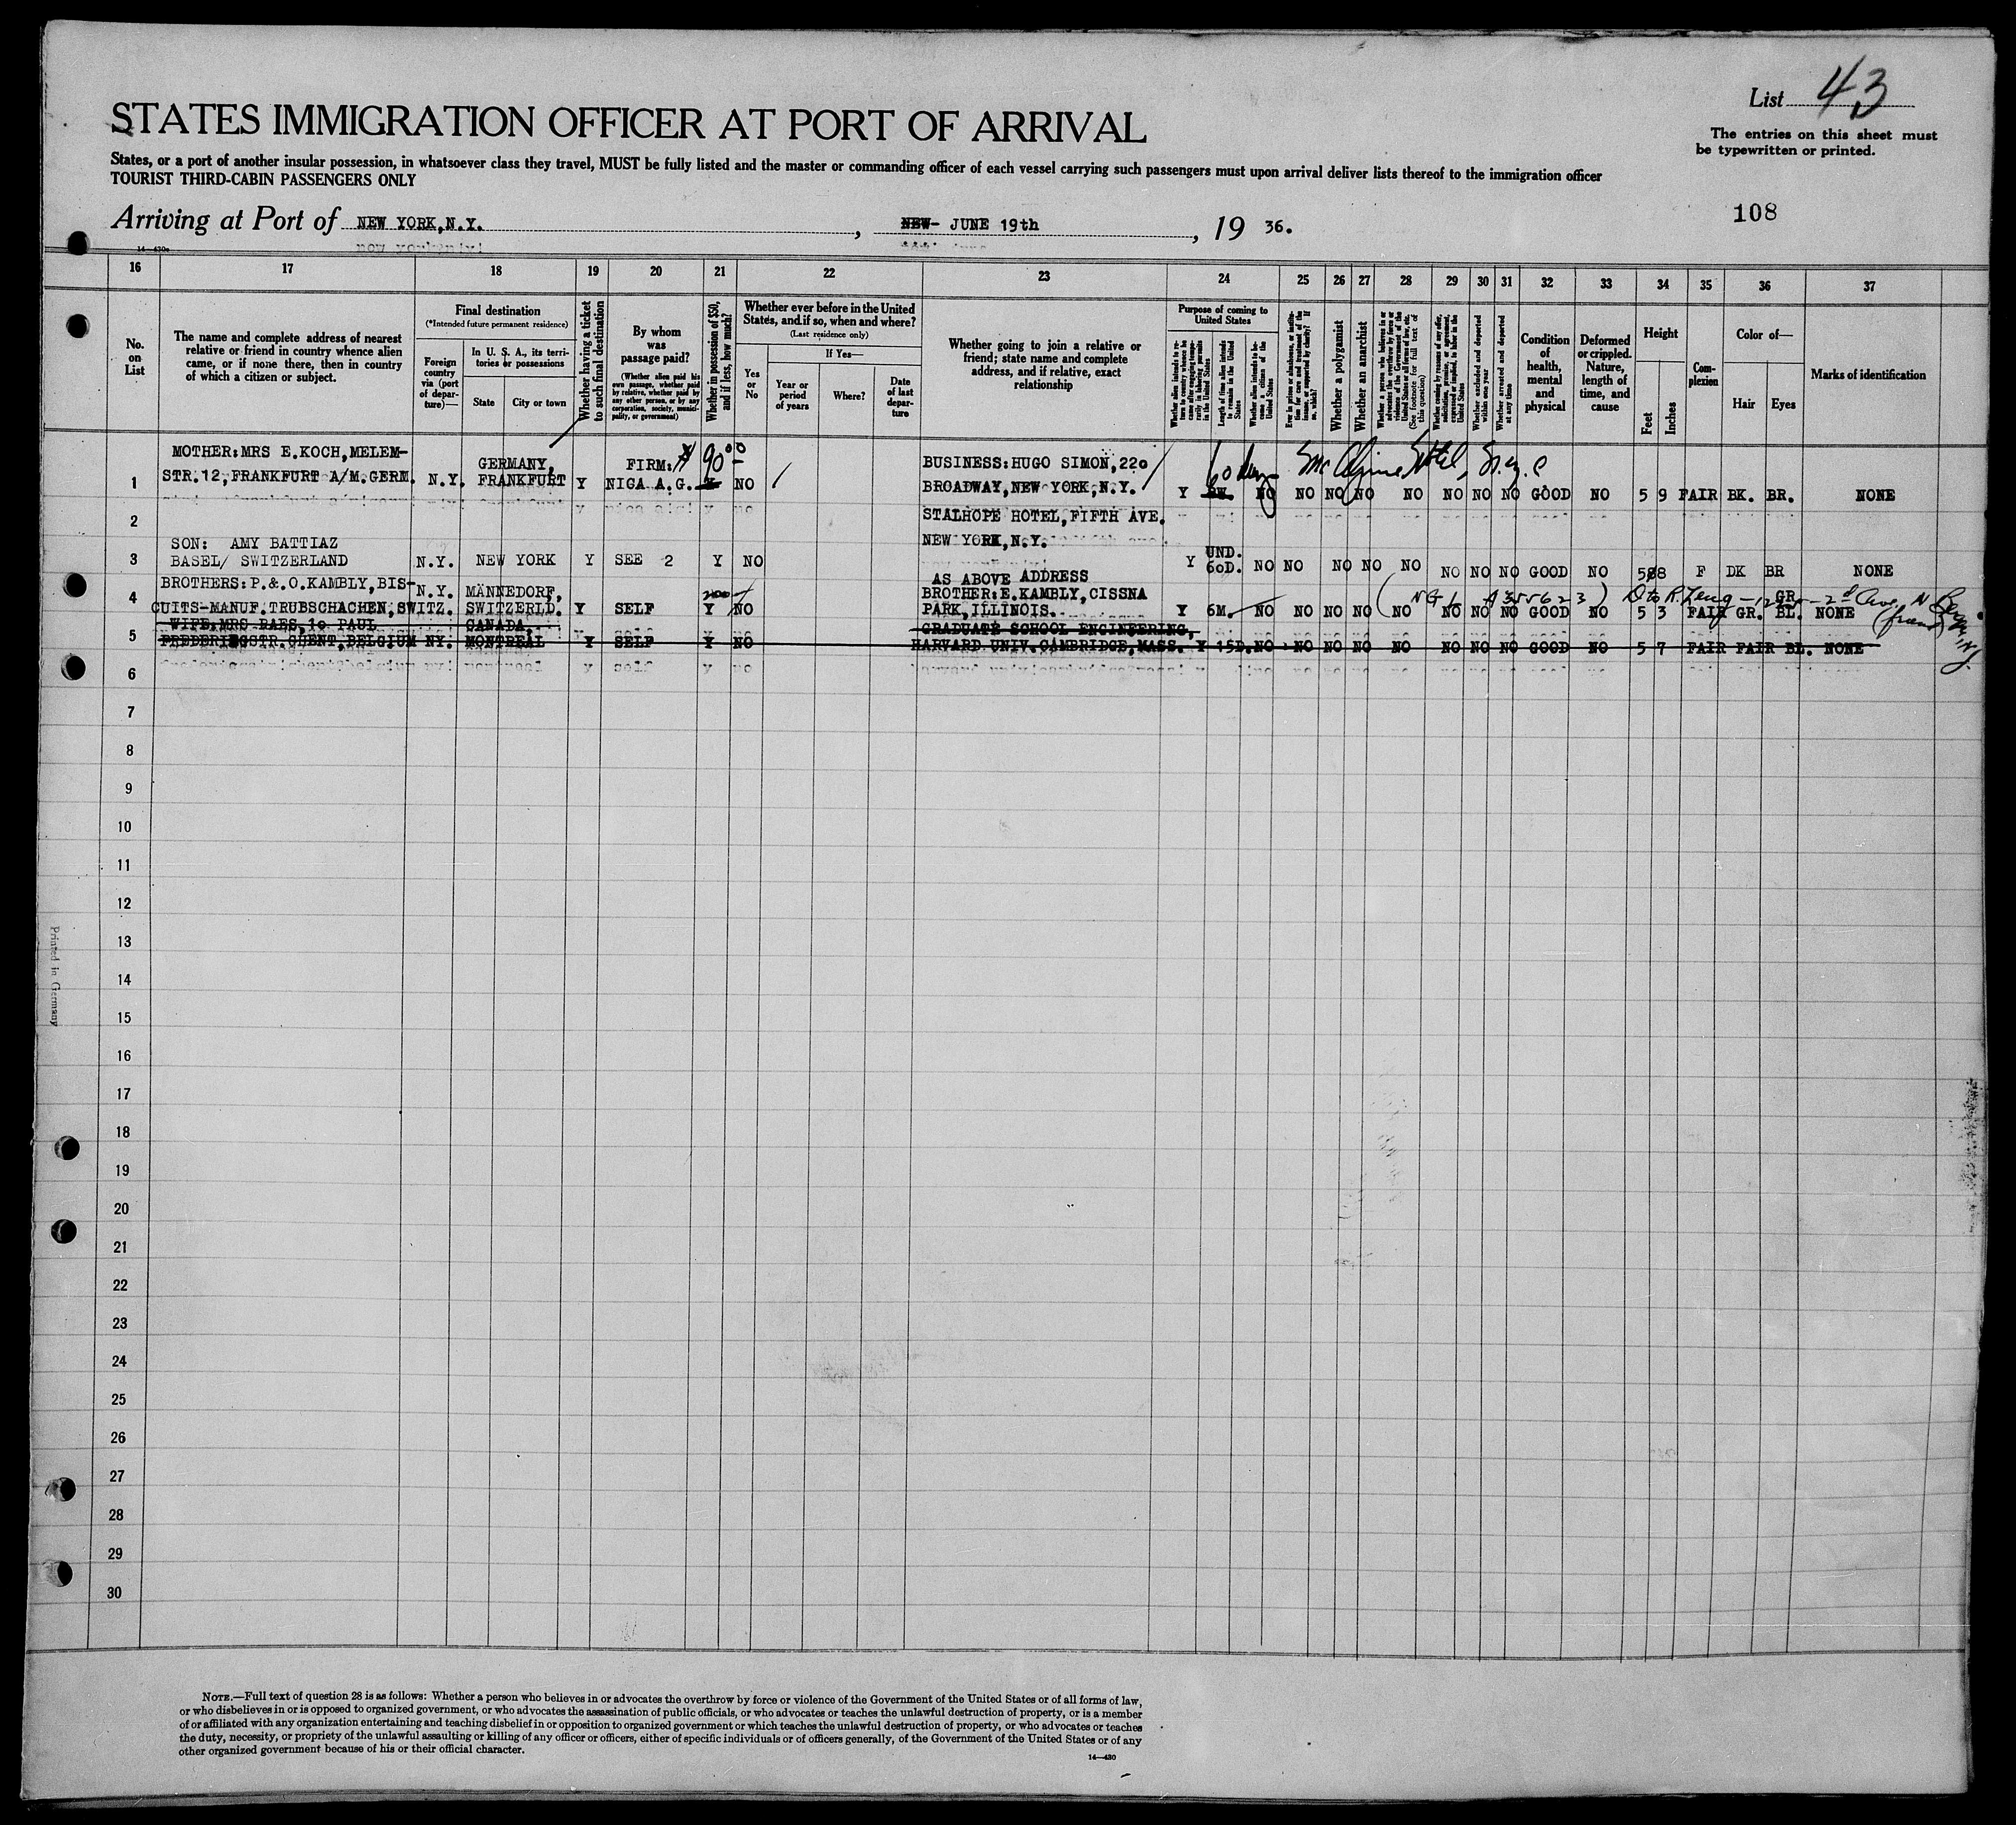 List 43
The entries on this sheet must
be typewritten or printed.
STATES IMMIGRATION OFFICER AT PORT OF ARRIVAL
States, or a port of another insular possession, in whatsoever class they travel, MUST be fully listed and the master or commanding officer of each vessel carrying such passengers must upon arrival deliver lists thereof to the immigration officer
TOURIST THIRD-CABIN PASSENGERS ONLY
108
Arriving at Port of NEW YORK,N.Y. , NEW- JUNE 19th , 19 36.
16 17 18 19 20 21 22 23 24 25 26 27 28 29 30 31 32 33 34 35 36 37
No. on List
The name and complete address of nearest relative or friend in country whence alien came, or if none there, then in country of which a citizen or subject.
Final destination
(*Intended future permanent residence)
Foreign country via (port of departure)—
In U. S. A., its territories or possessions
State
City or town
Whether having a ticket to such final destination
By whom was passage paid?
(Whether alien paid his own passage, whether paid by relative, whether paid by any other person, or by any corporation, society, municipality, or government)
Whether in possession of $50, and if less, how much?
Whether ever before in the United States, and if so, when and where?
(Last residence only)
Yes or No
If Yes—
Year or period of years
Where?
Date of last departure
Whether going to join a relative or friend; state name and complete address, and if relative, exact relationship
Purpose of coming to United States
Whether alien intends to return to country whence he came after engaging temporarily in laboring pursuits in the United States
Length of time alien intends to remain in the United States
Whether alien intends to become a citizen of the United States
Ever in prison or almshouse, or institution for care and treatment of the insane, or supported by charity? If so, which?
Whether a polygamist
Whether an anarchist
Whether a person who believes in or advocates the overthrow by force or violence of the Government of the United States or all forms of law, etc. (See footnote for full text of this question)
Whether coming by reasons of any offer, solicitation, promise, or agreement, expressed or implied, to labor in the United States
Whether excluded and deported within one year
Whether arrested and deported at any time
Condition of health, mental and physical
Deformed or crippled. Nature, length of time, and cause
Height
Feet
Inches
Complexion
Color of—
Hair
Eyes
Marks of identification
MOTHER:MRS E.KOCH,MELEM- GERMANY, FIRM: $ 90 00 BUSINESS:HUGO SIMON,220 60 days Mc Alpine Hotel, N.Y.C
1 STR.12,FRANKFURT A/M.GERM. N.Y. FRANKFURT Y NIGA A.G. Y NO BROADWAY,NEW YORK,N.Y. Y 8W. NO NO NO NO NO NO NO NO GOOD NO 5 9 FAIR BK. BR. NONE
2 STALHOPE HOTEL,FIFTH AVE.
SON: AMY BATTIAZ NEW YORK,N.Y. UND.
3 BASEL/ SWITZERLAND N.Y. NEW YORK Y SEE 2 Y NO Y 60D. NO NO NO NO NO NO NO NO GOOD NO 5 8 F DK BR NONE
AS ABOVE ADDRESS
BROTHERS:P.&.O.KAMBLY,BIS- N.Y. MÄNNEDORF, 200 BROTHER:E.KAMBLY,CISSNA GR.
4 CUITS-MANUF.TRUBSCHACHEN,SWITZ. SWITZERLD. Y SELF Y NO PARK,ILLINOIS. Y 6M. NO NO NO NO NO NO NO NO GOOD NO 5 3 FAIR GR. BL. NONE (friend)
WIFE,MRS RAES,10 PAUL CANADA, GRADUATE SCHOOL ENGINEERING,
5 FREDERIGSTR.GHENT,BELGIUM NY. MONTREAL Y SELF Y NO HARVARD UNIV.CAMBRIDGE,MASS. Y 15D. NO NO NO NO NO NO NO NO GOOD NO 5 7 FAIR FAIR BL. NONE
6
7
8
9
10
11
12
13
14
15
16
17
18
19
20
21
22
23
24
25
26
27
28
29
30
Printed in Germany
NOTE.—Full text of question 28 is as follows: Whether a person who believes in or advocates the overthrow by force or violence of the Government of the United States or of all forms of law,
or who disbelieves in or is opposed to organized government, or who advocates the assassination of public officials, or who advocates or teaches the unlawful destruction of property, or is a member
of or affiliated with any organization entertaining and teaching disbelief in or opposition to organized government or which teaches the unlawful destruction of property, or who advocates or teaches
the duty, necessity, or propriety of the unlawful assaulting or killing of any officer or officers, either of specific individuals or of officers generally, of the Government of the United States or of any
other organized government because of his or their official character.
14—430